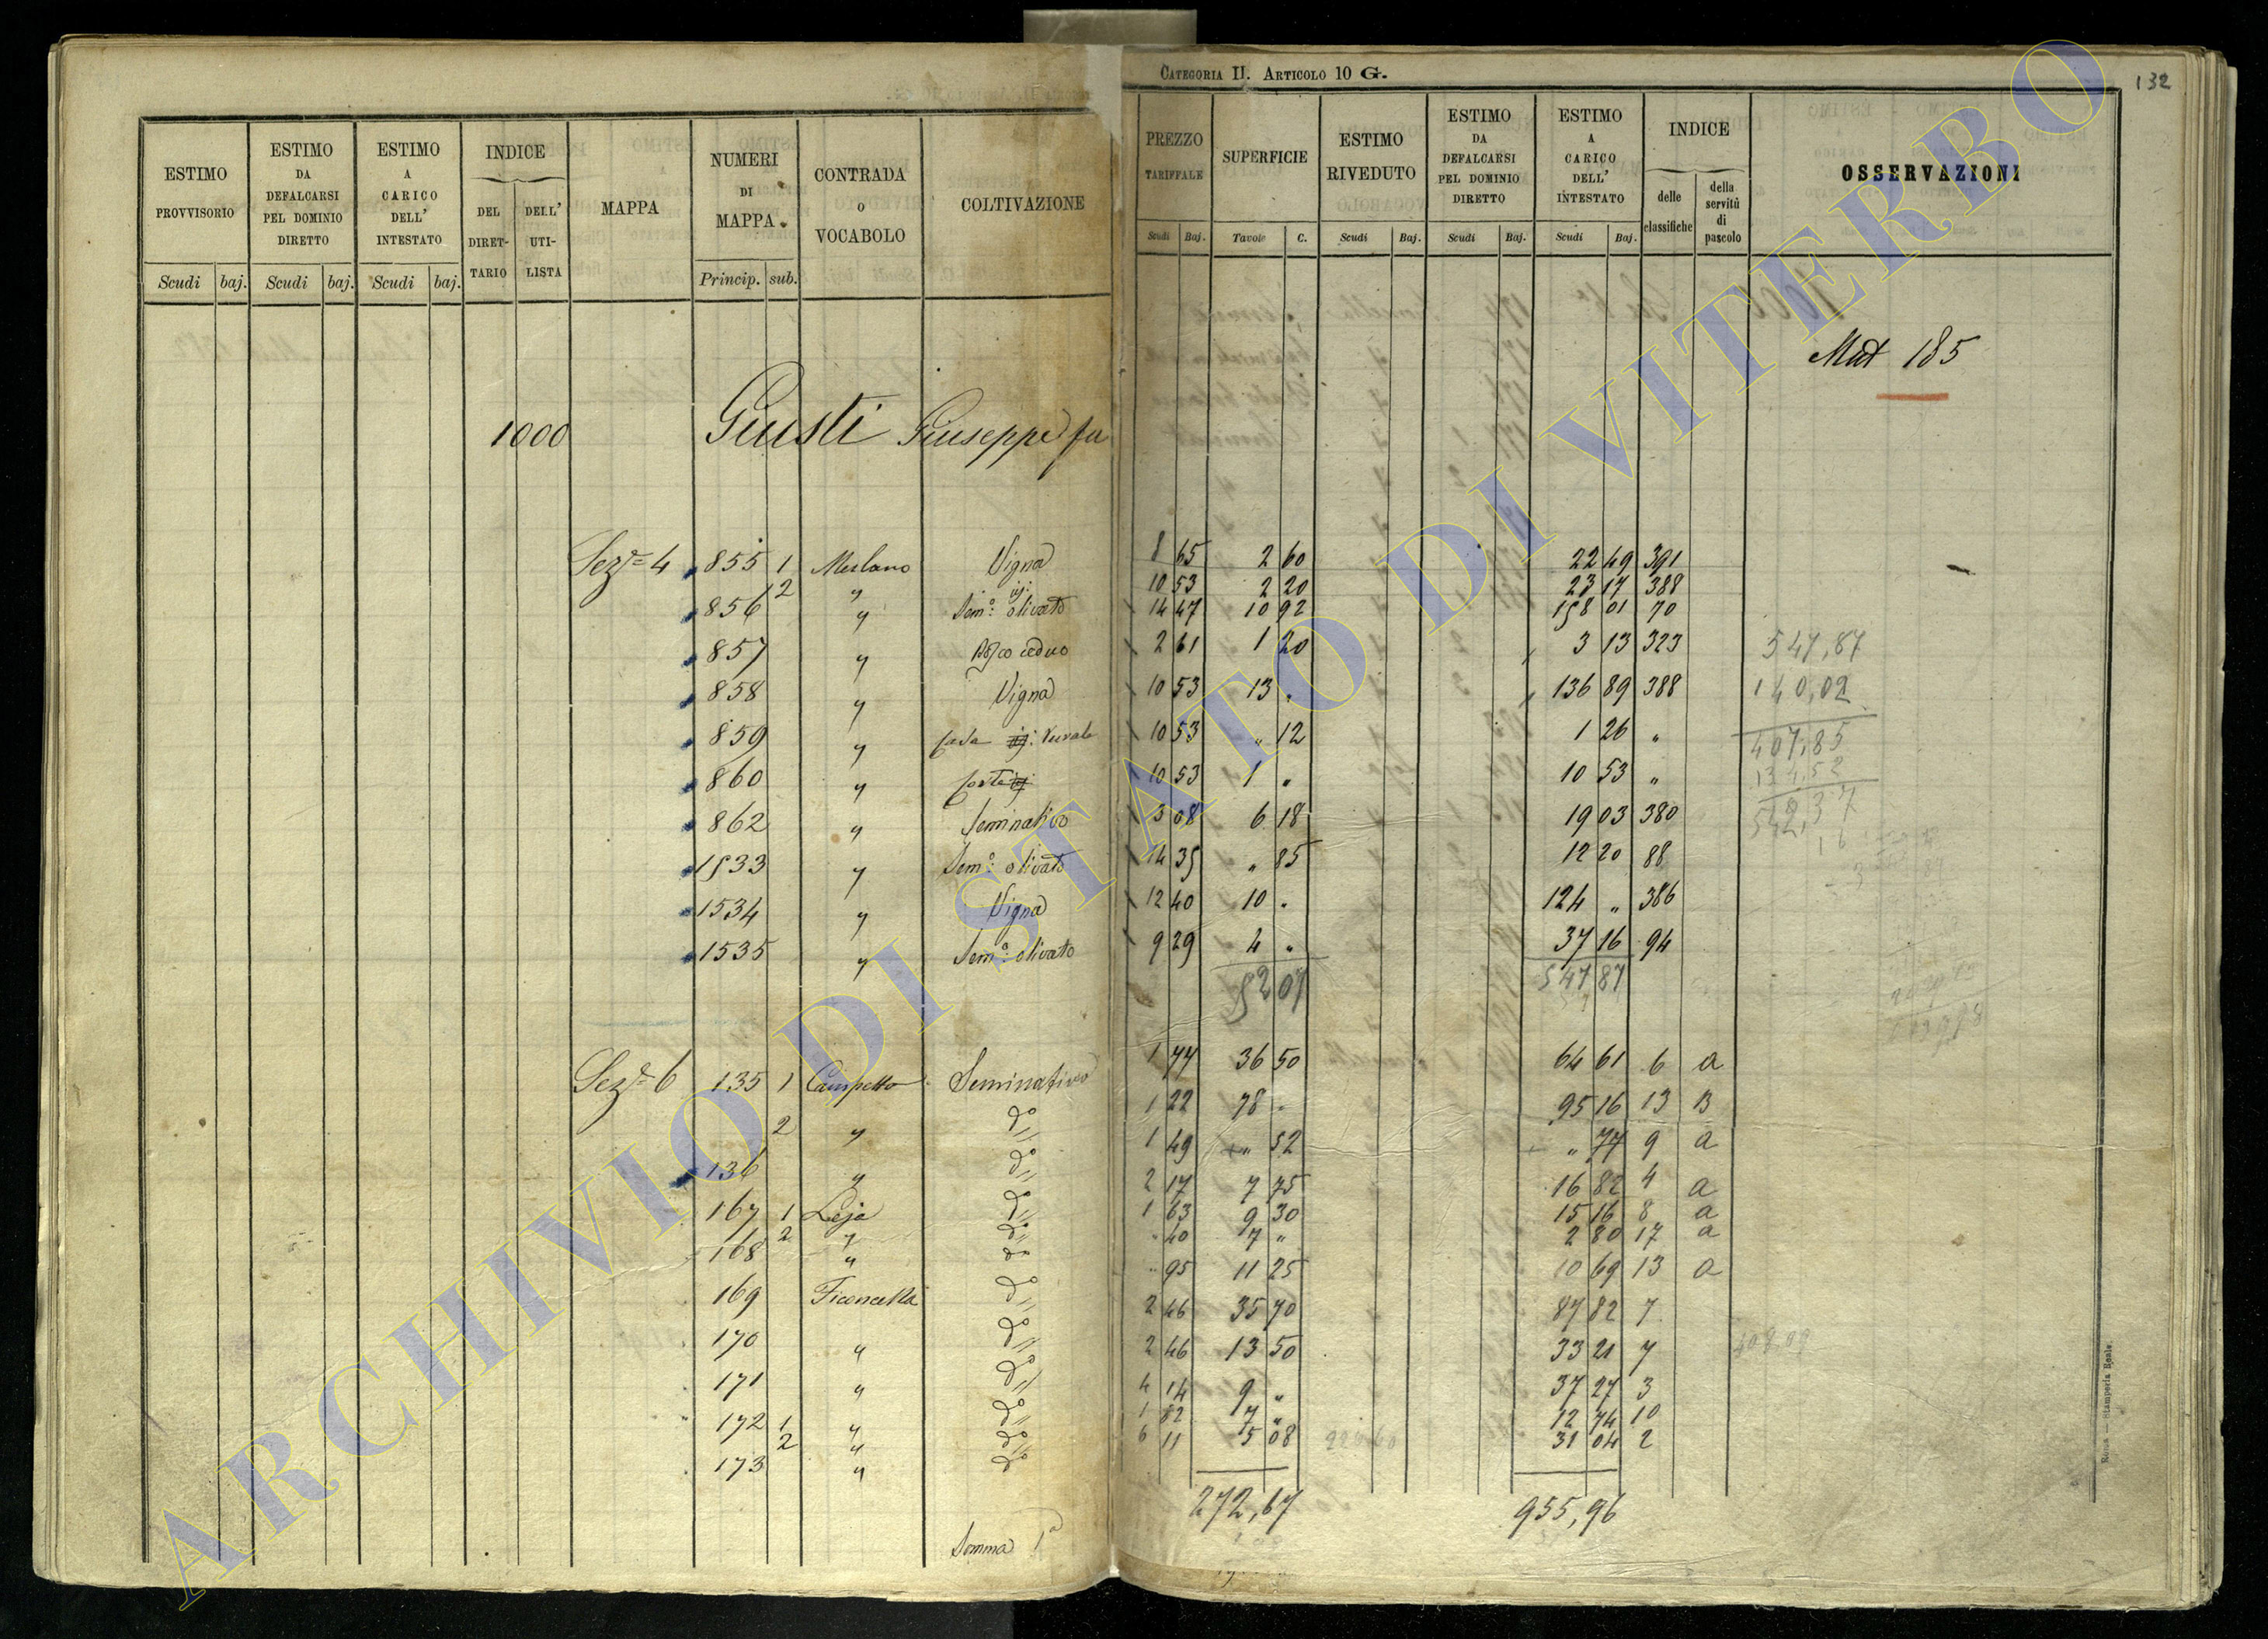 CATEGORIA II. ARTICOLO 10 G.
132
ESTIMO PROVVISORIO Scudi baj.
ESTIMO DA DEFALCARSI PEL DOMINIO DIRETTO Scudi baj.
ESTIMO A CARICO DELL' INTESTATO Scudi baj.
INDICE DEL DIRET-TARIO DELL' UTI-LISTA
MAPPA
NUMERI DI MAPPA Princip. sub.
CONTRADA O VOCABOLO
COLTIVAZIONE
PREZZO TARIFFALE Scudi Baj.
SUPERFICIE Tavole C.
ESTIMO RIVEDUTO Scudi Baj.
ESTIMO DA DEFALCARSI PEL DOMINIO DIRETTO Scudi Baj.
ESTIMO A CARICO DELL' INTESTATO Scudi Baj.
INDICE delle classifiche della servitù di pascolo
OSSERVAZIONI
Mut 185
1000 Giusti Giuseppe fu
Sez.e 4 855 1 Merlano Vigna 8 65 2 60 22 49 391
2 " id. 10 53 2 20 23 17 388
856 " Sem.o olivato 14 47 10 92 158 01 70
857 " Bosco ceduo 2 61 1 20 3 13 323 547,87
858 " Vigna 10 53 13 " 136 89 388 140,02
859 " Casa rurale 10 53 " 12 1 26 " 407,85
860 " Corte 10 53 1 " 10 53 " 134,52
862 " Seminativo 3 08 6 18 19 03 380 542,37
1533 " Sem.o olivato 14 35 " 85 12 20 88
1534 " Vigna 12 40 10 " 124 " 386
1535 " Sem.o olivato 9 29 4 " 37 16 94
52 07 547 87
Sez.e 6 135 1 Campetto Seminativo 1 77 36 50 64 61 6 a
2 " d.o 1 22 78 " 95 16 13 B
136 " d.o 1 49 " 52 " 77 9 a
167 1 Leja d.o 2 17 7 75 16 82 4 a
2 " d.o 1 63 9 30 15 16 8 a
168 " d.o " 40 7 " 2 80 17 a
169 Ficoncella d.o " 95 11 25 10 69 13 a
170 " d.o 2 46 35 70 87 82 7
171 " d.o 2 46 13 50 33 21 7
172 1 " d.o 4 14 9 " 37 27 3
2 " d.o 1 82 7 " 12 74 10
173 " d.o 6 11 5 08 31 04 2
272,67 955,96
Somma 1a
Roma — Stamperia Reale.
ARCHIVIO DI STATO DI VITERBO